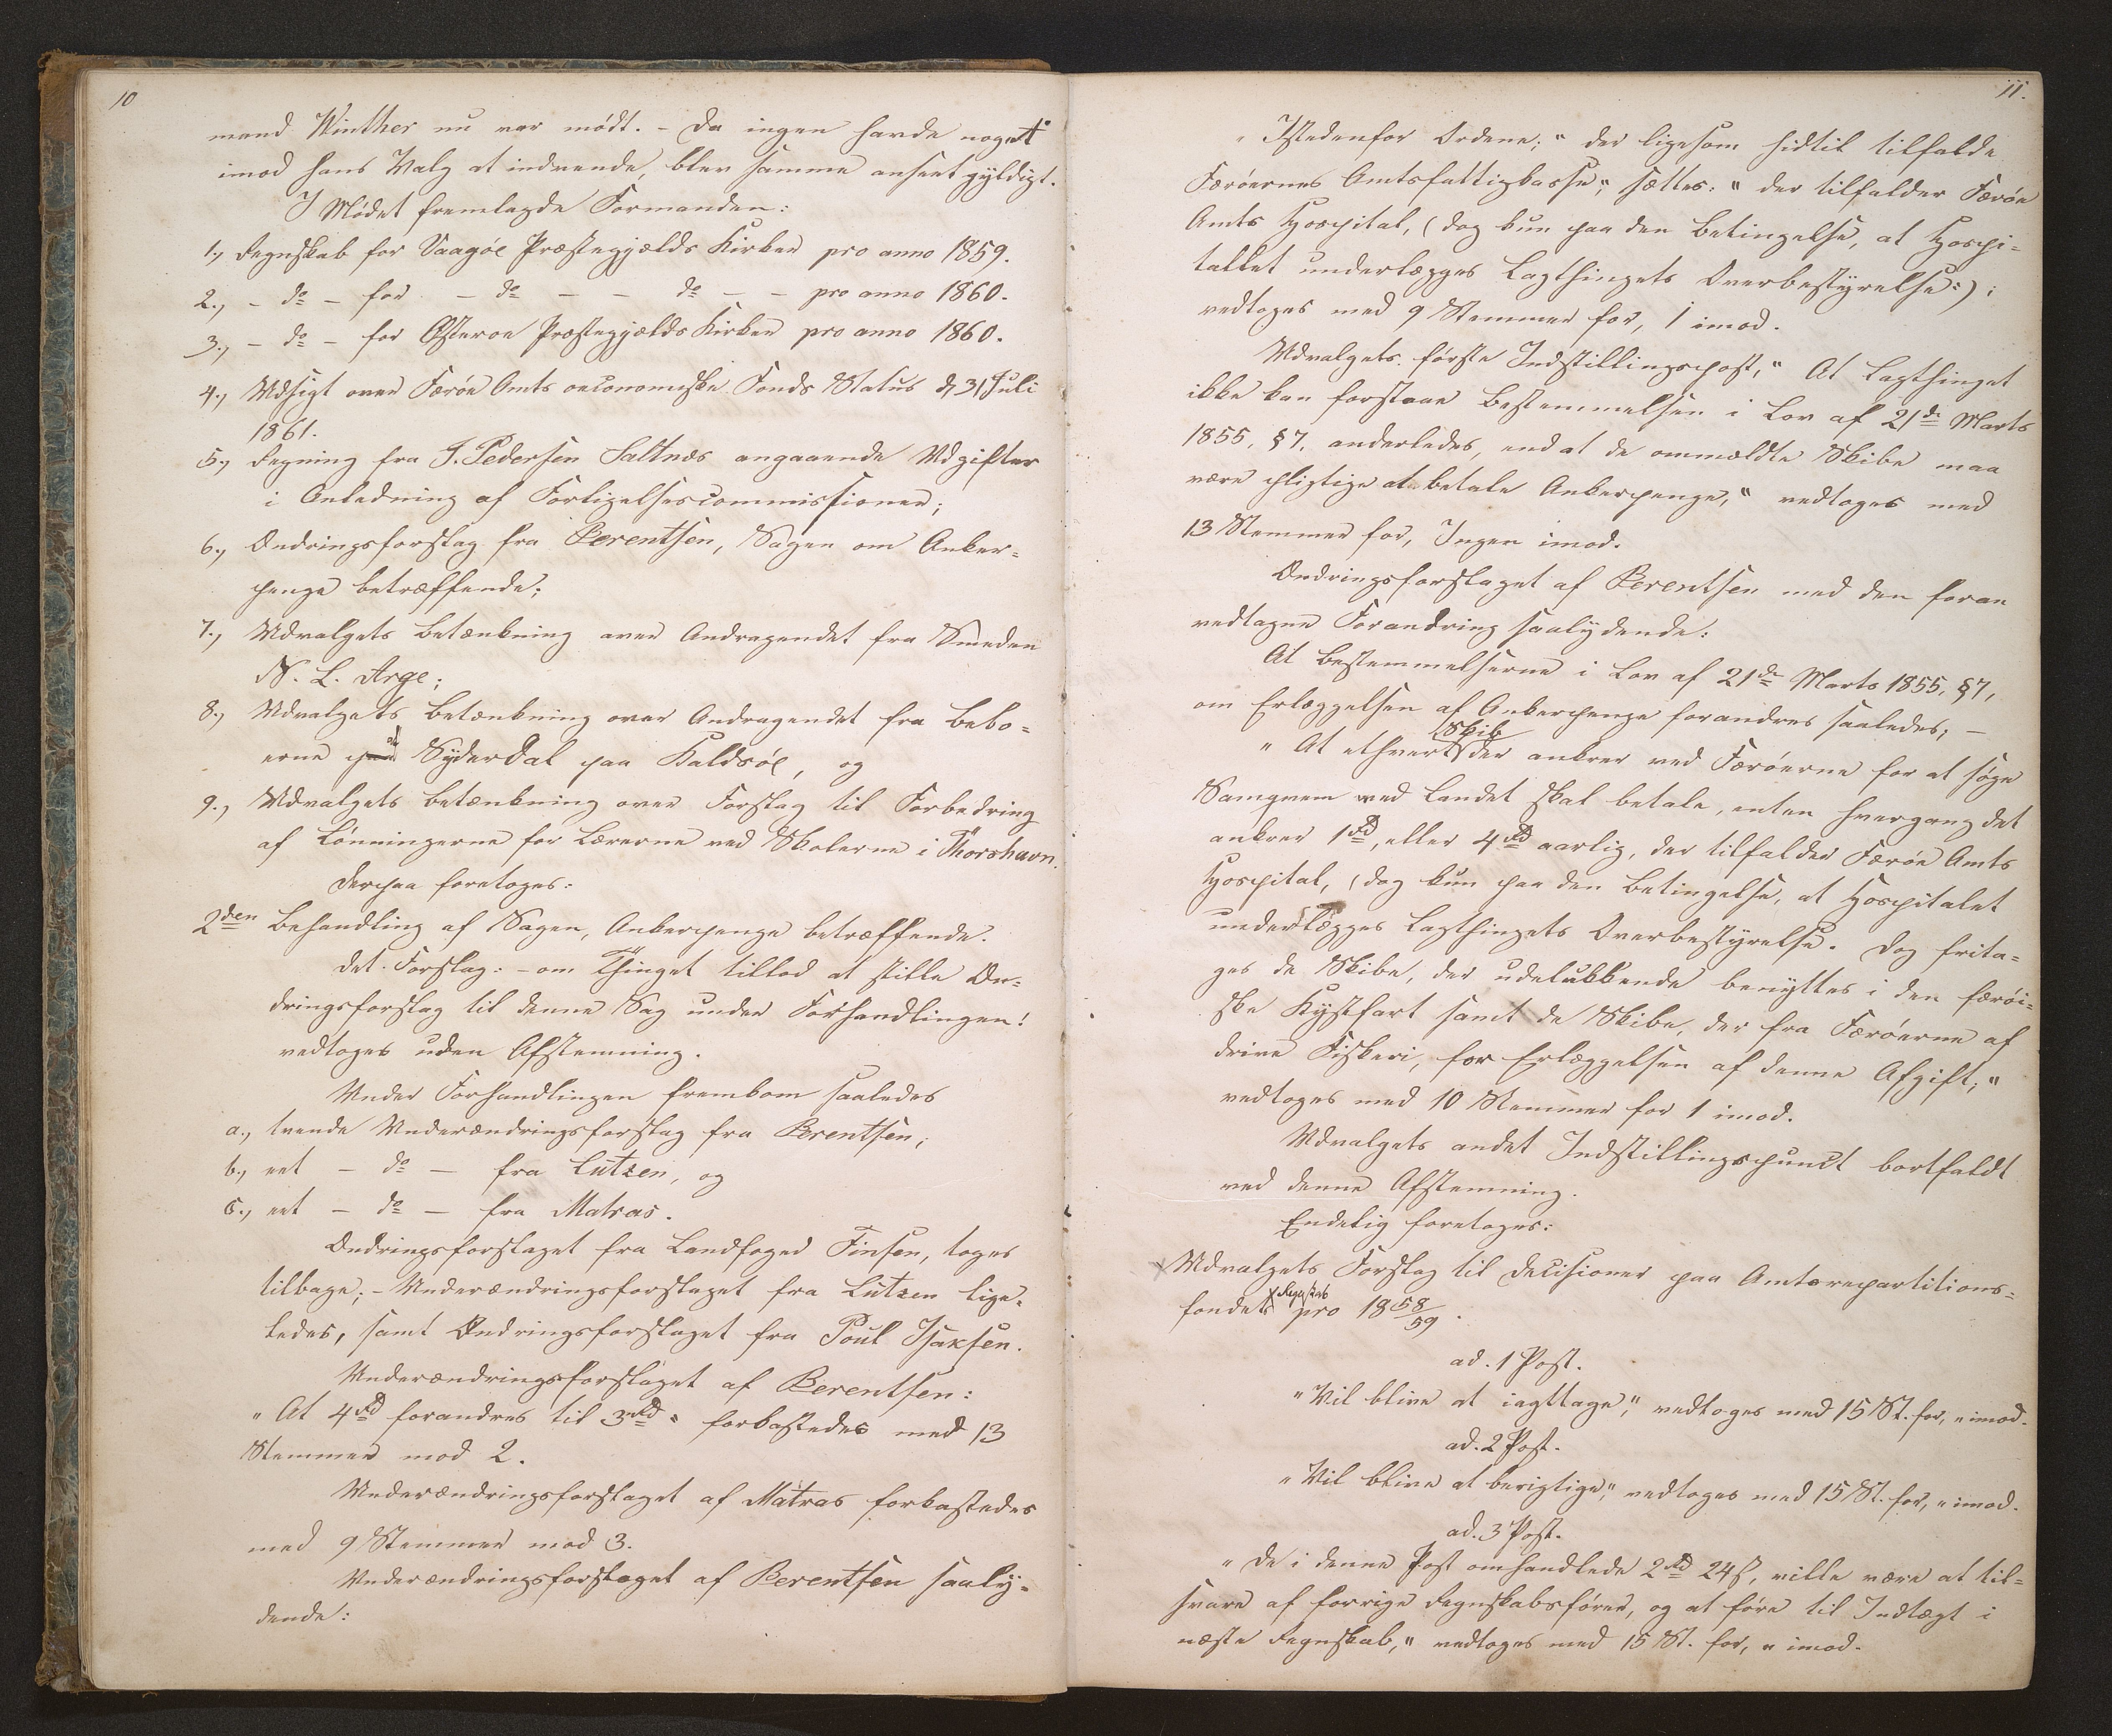 10
mand Winther nu var mödt. – Da ingen havde noget
imod hans Valg at indvende, blev samme anseet gyldigt.
I Mödet fremlagde Formanden:
1., Regnskab for Vaagöe Præstegjælds Kirker pro anno 1859.
2., – do – for – do – – do – – pro anno 1860.
3., – do – for Österoe Præstegjælds Kirker pro anno 1860.
4., Udsigt over Færöe Amts oeconomiske Fonds Status d. 31 Juli
1861.
5., Regning fra J. Pedersen Saltnæs angaaende Udgifter
i Anledning af Forligelsescommissioner;
6., Ændringsforslag fra Berentsen, Sagen om Anker=
penge betræffende;
7., Udvalgets Betænkning over Andragendet fra Smeden
N. L. Arge;
8., Udvalgets Betænkning over Andragendet fra Bebo=
erne i Syderdal paa Kaldsöe, og
9., Udvalgets Betænkning over Forslag til Forbedring
af Lönningerne for Lærerne ved Skolerne i Thorshavn.
Derpaa foretoges:
2den Behandling af Sagen, Ankerpenge betræffende.
Det Forslag: – om Thinget tillod at stille Æn=
dringsforslag til denne Sag under Forhandlingen!
vedtoges uden Afstemning.
Under Forhandlingen fremkom saaledes
a., tvende Underændringsforslag fra Berentsen;
b., eet – do – fra Lützen, og
c., eet – do – fra Matras.
Ændringsforslaget fra Landfoged Finsen, toges
tilbage; – Underændringsforslaget fra Lützen lige=
ledes, samt Ændringsforslaget fra Poul Isaksen.
Underændringsforslaget af Berentsen:
"At 4 Rd forandres til 3 Rd" forkastedes med 13
Stemmer mod 2.
Underændringsforslaget af Matras forkastedes
med 9 Stemmer mod 3.
Underændringsforslaget af Berentsen saaly=
dende:
11.
"Istedenfor Ordene; "der ligesom hidtil tilfalde
Færöernes Amtsfattigkasse", sættes: "der tilfalder Færöe
Amts Hospital, (dog kun paa den Betingelse, at Hospi=
tallet underlægges Lagthingets Overbestyrelse:) ;
vedtoges med 9 Stemmer for, 1 imod.
Udvalgets förste Indstillingspost, "At Lagthinget
ikke kan forstaae Bestemmelsen i Lov af 21de Marts
1855, § 7, anderledes, end at de ommældte Skibe maa
være pligtige at betale Ankerpenge," vedtoges med
13 Stemmer for, Ingen imod.
Ændringsforslaget af Berentsen med den foran
vedtagne Forandring saalydende:
At Bestemmelserne i Lov af 21de Marts 1855, § 7,
om Erlæggelsen af Ankerpenge forandres saaledes; –
"At ethvert Skib der ankrer ved Færöerne for at söge
Samqvem ved Landet skal betale, enten hvergang det
ankrer 1 Rd, eller 4 Rd aarlig, der tilfalder Færöe Amts
Hospital, (dog kun paa den Betingelse, at Hospitalet
underlægges Lagthingets Overbestyrelse. Dog frita=
ges de Skibe, der udelukkende benyttes i den færöi=
ske Kystfart samt de Skibe, der fra Færöerne af
drive Fiskeri, for Erlæggelsen af denne Afgift;"
vedtoges med 10 Stemmer for 1 imod.
Udvalgets andet Indstillingspunct bortfaldt
ved denne Afstemning.
Endelig foretoges:
Udvalgets Forslag til Decisioner paa Amtsrepartitions=
fondets Regnskab pro 1858/59.
ad. 1 Post.
"Vil blive at iagttage", vedtoges med 15 St. for, " imod.
ad. 2 Post.
"Vil blive at berigtige", vedtoges med 15 St. for, " imod.
ad. 3 Post.
"De i denne Post omhandlede 2 Rd 24 ß, ville være at til=
svare af forrige Regnskabsförer, og at före til Indtægt i
næste Regnskab," vedtoges med 15 St. for, " imod.